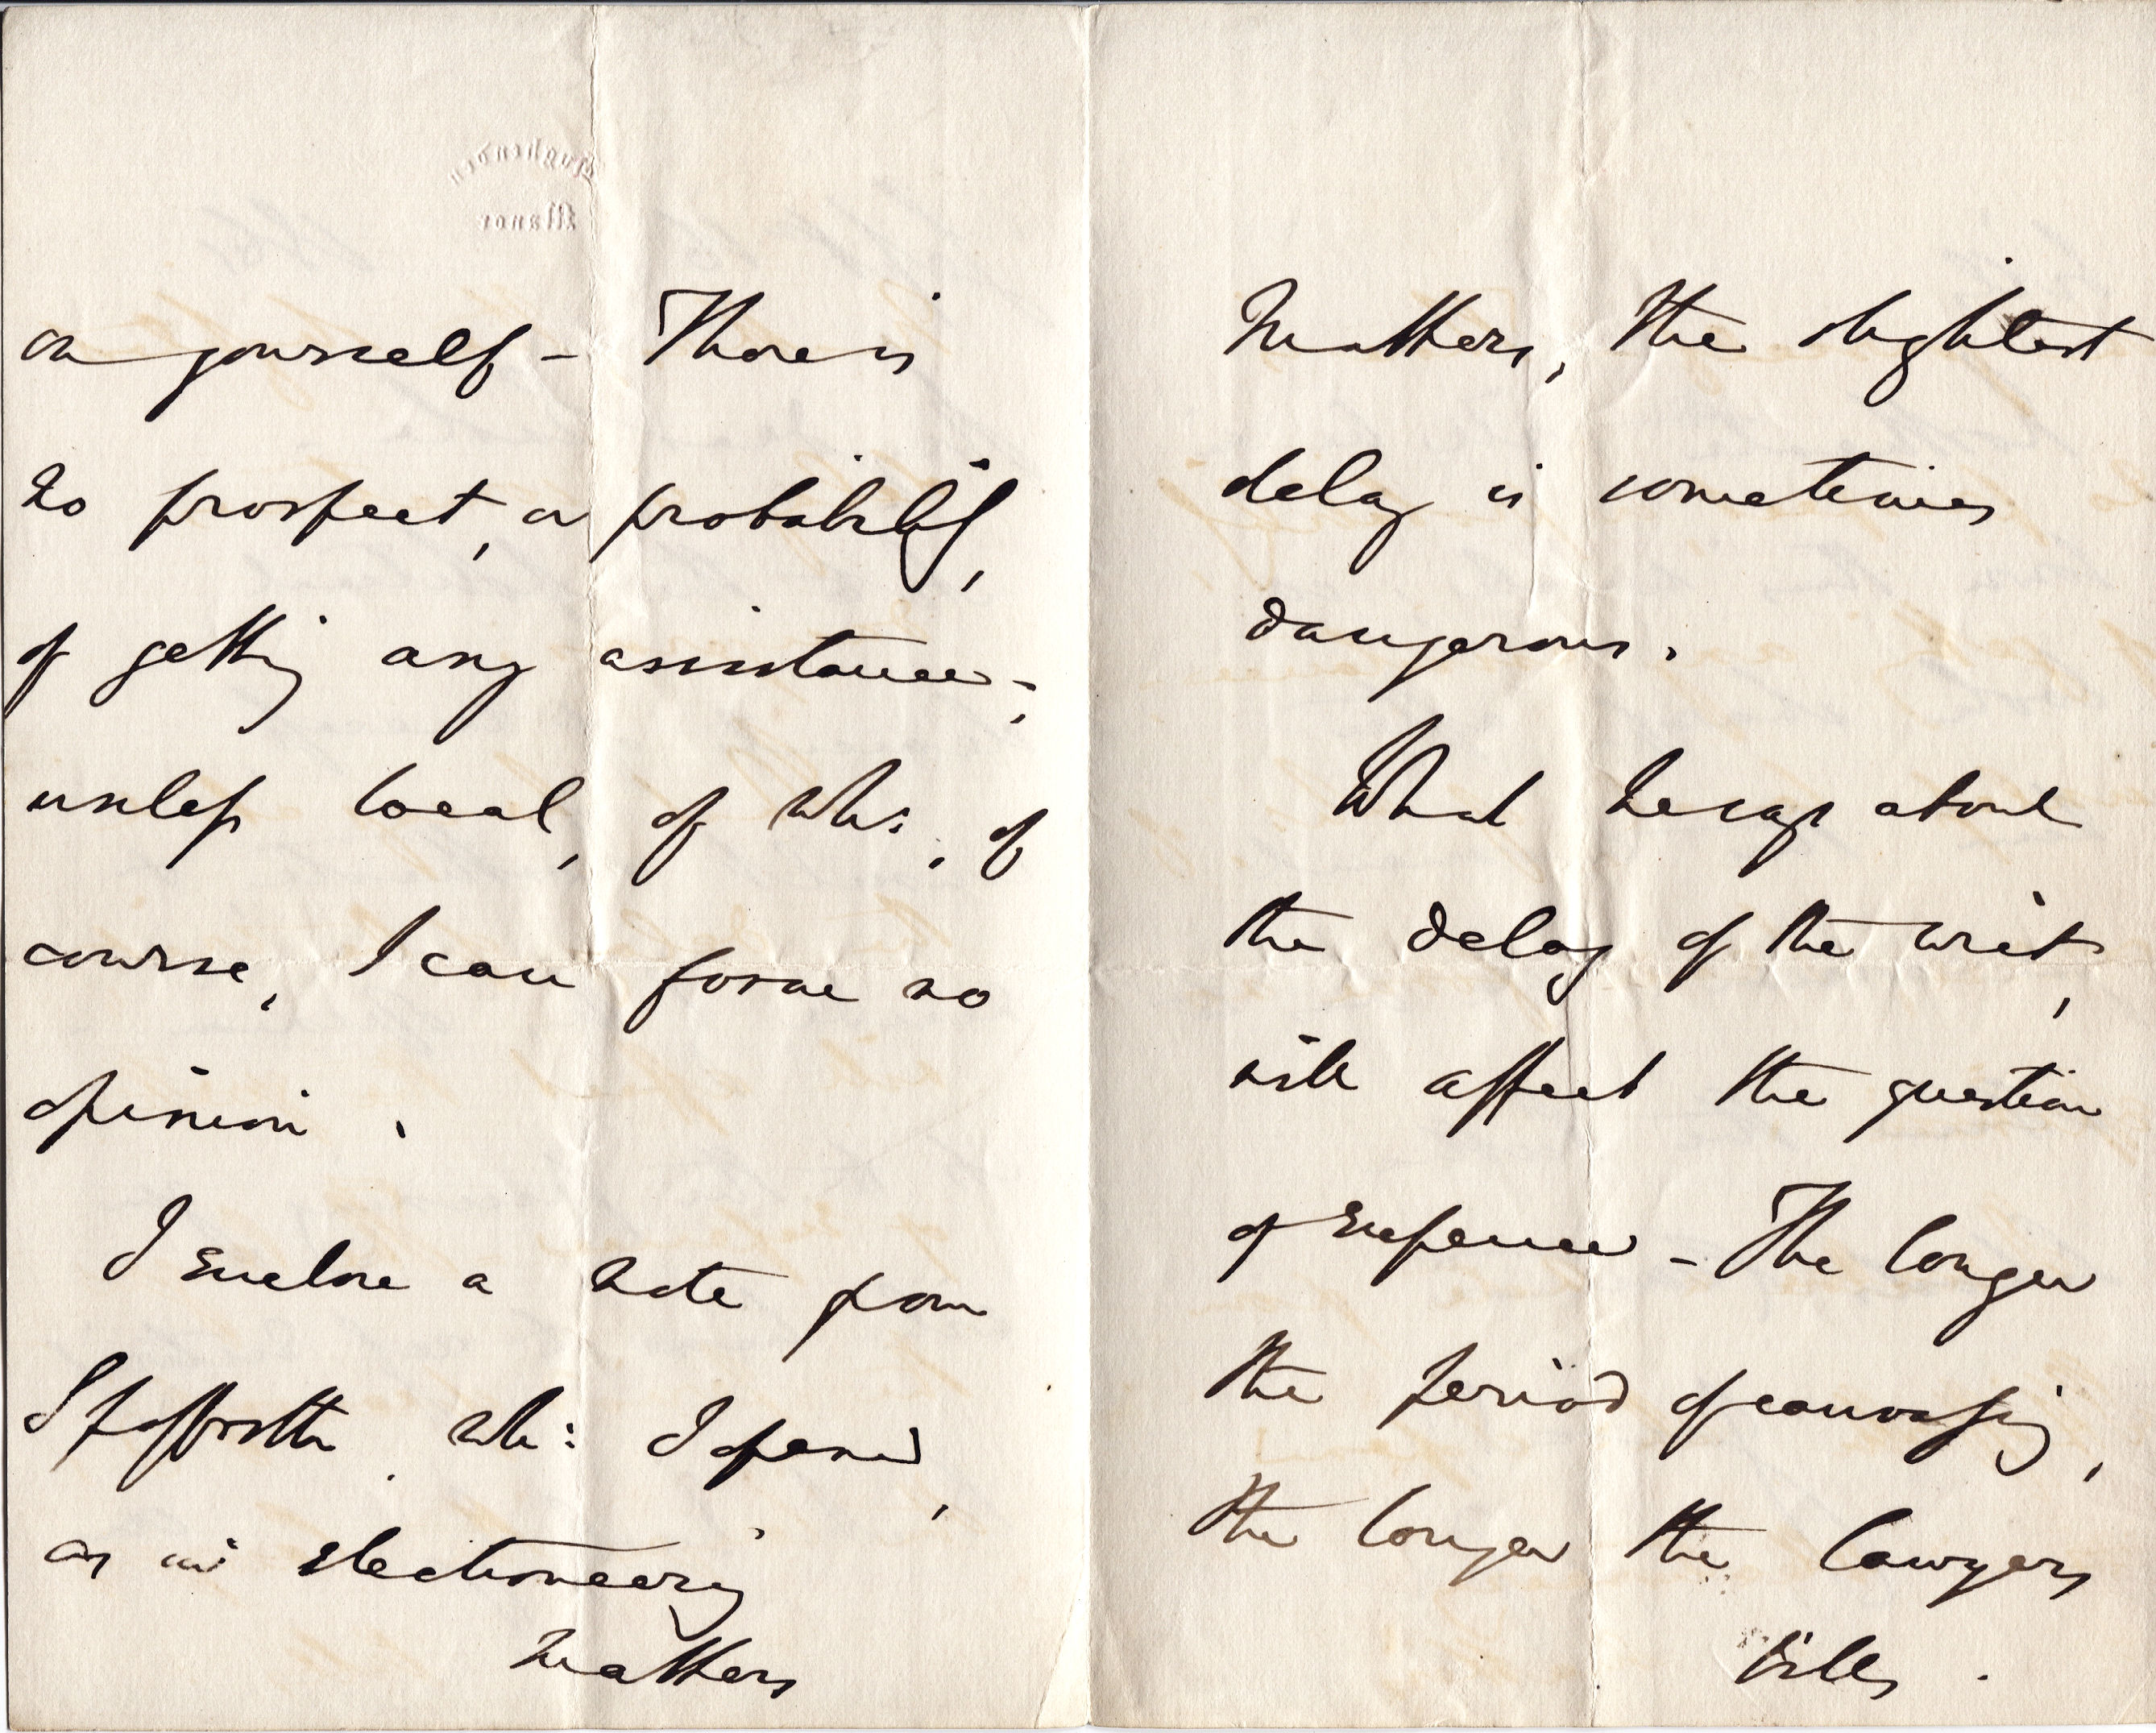 Hughenden
Manor
on yourself – There is
no prospect, or probability,
of getting any assistance;
unless local, of whi:, of
course, I can form no
opinion.
I enclose a note from
Spofforth whi: I opened,
as in electioneering
matters
matters, the slightest
delay is sometimes
dangerous.
What he says about
the delay of the writ,
will affect the question
of expence – The longer
the period of canvassing,
the longer the lawyers
bills.